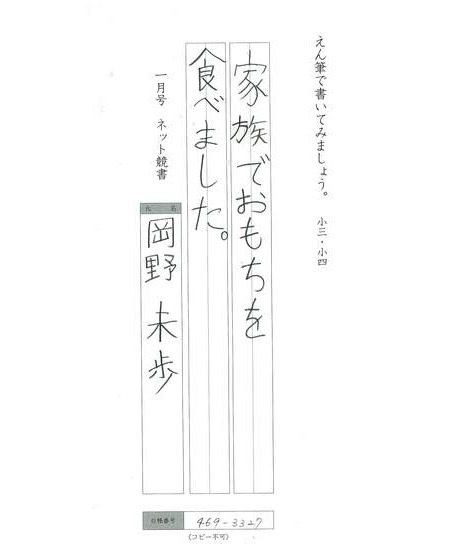 えん筆で書いてみましょう。 小三・小四
家族でおもちを
食べました。
一月号 ネット競書
氏名
岡野 未歩
会員番号 469-3327
(コピー不可)